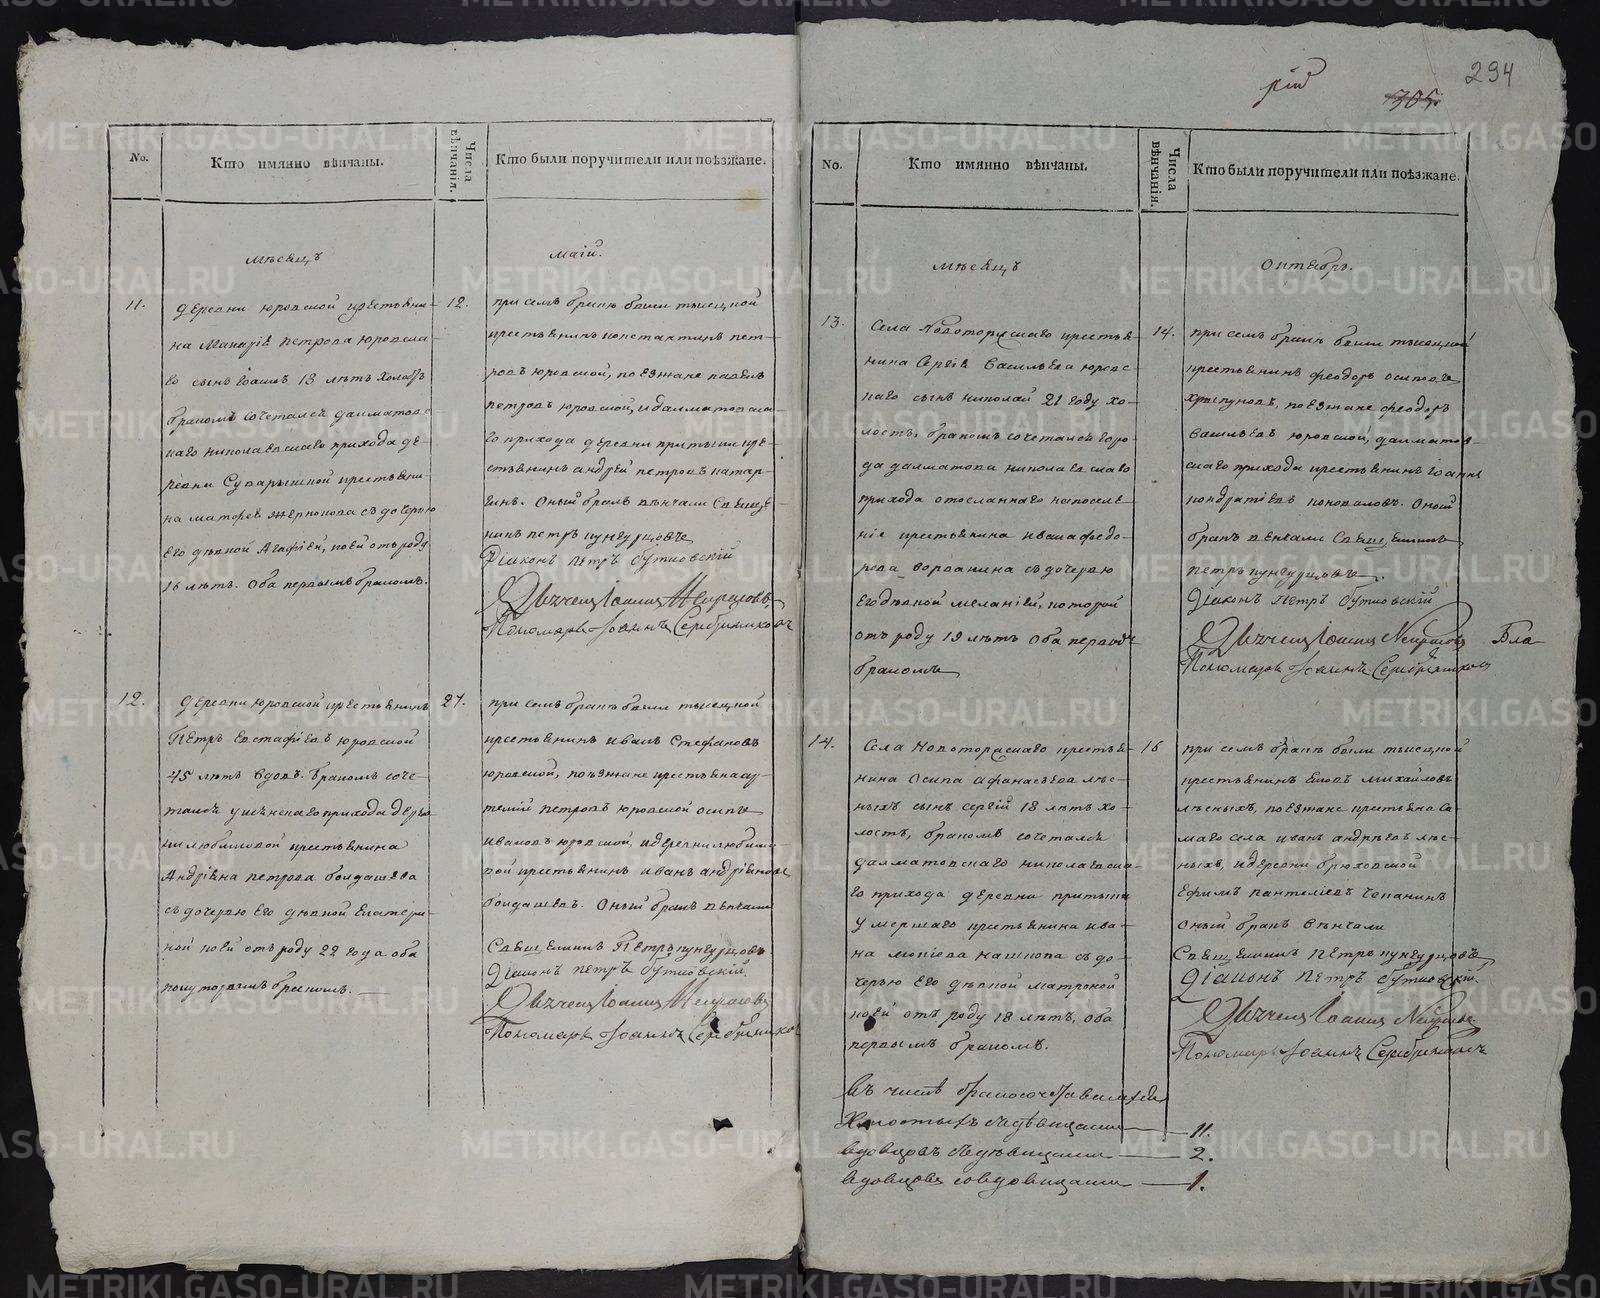 294
305.
No.
Кто имянно вѣнчаны.
Числа вѣнчанія.
Кто были поручители или поѣзжане.
мѣсяцъ
маій.
11.
деревни юровской крестьяни-
на Макарія Петрова юровска-
го сынъ Іоаннъ 18 лѣтъ холостъ
бракомъ сочетался далматовс
каго николаевскаго прихода де-
ревни Суварышской крестьяни-
на матфея жернокова съ дочерью
его дѣвкой Агафіей, коей отъ роду
16 лѣтъ. Оба первымъ бракомъ.
12.
при семъ бракѣ были тысецкой
крестьянинъ константинъ пет-
ровъ юровской, поезжане павелъ
петровъ юровской, и далматовска
го прихода деревни притыки кре-
стьянинъ андрей петровъ
Оный бракъ вѣнчали Свяще-
никъ петръ кунгурцовъ
Діаконъ петръ Бутковскій
Іоаннъ Некрасовъ
Пономарь Іоаннъ Серебрениковъ
12.
деревни юровской крестьянинъ
Петръ Евстафіевъ юровской
45 лѣтъ вдовъ. бракомъ соче-
тался прихода дерев
ни любимовой крестьянина
Андріяна петрова болдашева
съ дочерью его дѣвкой Екатери-
ной коей отъ роду 22 года оба
полуторымъ бракомъ.
27.
при семъ бракѣ были тысецкой
крестьянинъ иванъ Стефановъ
юровской, поезжане крестьяна ар-
темій петровъ юровской осипъ
ивановъ юровской, и деревни любимо-
вой крестьянинъ иванъ андріяновъ
болдашевъ. Оный бракъ вѣнчали
Священникъ Петръ кунгурцовъ
Діаконъ петръ бутковскій
Іоаннъ Некрасовъ
Пономарь Іоаннъ Серебрениковъ
No.
Кто имянно вѣнчаны.
Числа вѣнчанія.
Кто были поручители или поѣзжане.
мѣсяцъ
октябрь.
13.
Села Новоторжскаго крестья-
нина Сергія Васильева юровс-
каго сынъ николай 21 году хо-
лостъ, бракомъ сочетался горо-
да далматова николаевскаго
прихода отосланнаго на поселе-
ніе крестьянина ивана федо-
рова съ дочерью
его дѣвкой меланіей, которой
отъ роду 19 лѣтъ оба первымъ
бракомъ
14.
при семъ бракѣ были тысецкой
крестьянинъ феодоръ осиповъ
поезжане феодоръ
васильевъ юровской, далматов-
скаго прихода крестьянинъ іоаннъ
кондратіевъ коноваловъ. Оный
бракъ венчали Священникъ
петръ кунгурцовъ.
Діаконъ Петръ бутковскій
Іоаннъ Некрасовъ
Бла
Пономарь Іоаннъ Серебрениковъ
14.
Села Новоторжскаго крестья-
нина Осипа афанасьева лѣс-
ныхъ сынъ сергій 18 лѣтъ хо-
лостъ, бракомъ сочетался
далматовскаго николаевска-
го прихода деревни притыки
умершаго крестьянина ива-
на съ до-
черью его дѣвкой матроной
коей отъ роду 18 лѣтъ, оба
первымъ бракомъ.
16
при семъ бракѣ были тысецкой
крестьянинъ михайловъ
лѣсныхъ, поезжане крестьяна са-
маго села иванъ андреевъ лѣс-
ныхъ, и деревни брюховской
Ефимъ пантелеевъ чепанинъ
оный бракъ вѣнчали
Священникъ Петръ кунгурцовъ
Діаконъ Петръ бутковскій.
Іоаннъ Некрасовъ
Пономарь Іоаннъ Серебрениковъ
въ числѣ
Холостыхъ съ дѣвицами — 11.
вдовцовъ съ дѣвицами — 2.
вдовцовъ со вдовицами — 1.
METRIKI.GASO-URAL.RU